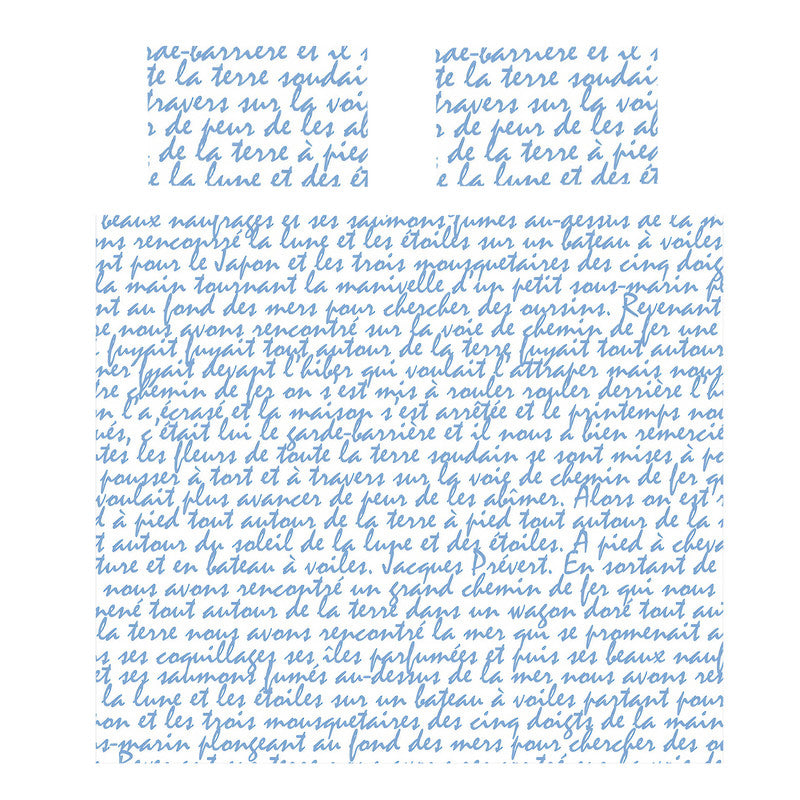 rde-barrière et il s
te la terre soudai
travers sur la voi
r de peur de les ab
de la terre à pied
e la lune et des ét
rde-barrière et il s
te la terre soudai
travers sur la voi
r de peur de les ab
de la terre à pied
e la lune et des ét
beaux naufrages et ses saumons-fumés au-dessus de la m
ns rencontré la lune et les étoiles sur un bateau à voiles
nt pour le Japon et les trois mousquetaires des cinq doig
la main tournant la manivelle d'un petit sous-marin pl
nt au fond des mers pour chercher des oursins. Revenant
re nous avons rencontré sur la voie de chemin de fer une
fuyait fuyait tout autour de la terre fuyait tout autour
mer fyait devant l'hiber qui voulait l'attraper mais nous
re chemin de fer on s'est mis à rouler rouler derrière l'hi
n l'a écrasé et la maison s'est arrêtée et le printemps nou
ués, c'était lui le garde-barrière et il nous a bien remercié
tes les fleurs de toute la terre soudain se sont mises à po
pousser à tort et à travers sur la voie de chemin de fer qu
voulait plus avancer de peur de les abîmer. Alors on est r
d à pied tout autour de la terre à pied tout autour de la s
t autour du soleil de la lune et des étoiles. A pied à cheva
ture et en bateau à voiles. Jacques Prévert. En sortant de
nous avons rencontré un grand chemin de fer qui nous
mené tout autour de la terre dans un wagon doré tout au
la terre nous avons rencontré la mer qui se promenait a
s ses coquillages ses îles parfumées et puis ses beaux nauf
et ses saumons fumés au-dessus de la mer nous avons ren
la lune et les étoiles sur un bateau à voiles partant pour
pon et les trois mousquetaires des cinq doigts de la main
s-marin plongeant au fond des mers pour chercher des ou